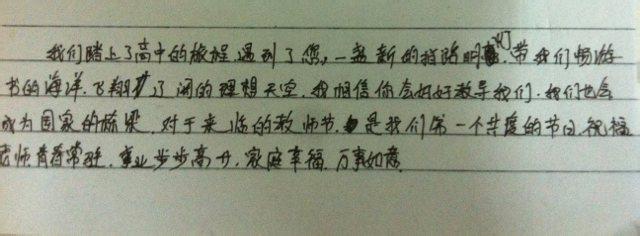 我们踏上了高中的旅程,遇到了您,一盏新的指路明灯,带我们畅游
书的海洋,飞翔扩了阔的理想天空,我相信你会好好教导我们,我们也会
成为国家的栋梁,对于来临的教师节,是我们第一个共度的节日,祝福
老师青春常驻,事业步步高升,家庭幸福,万事如意